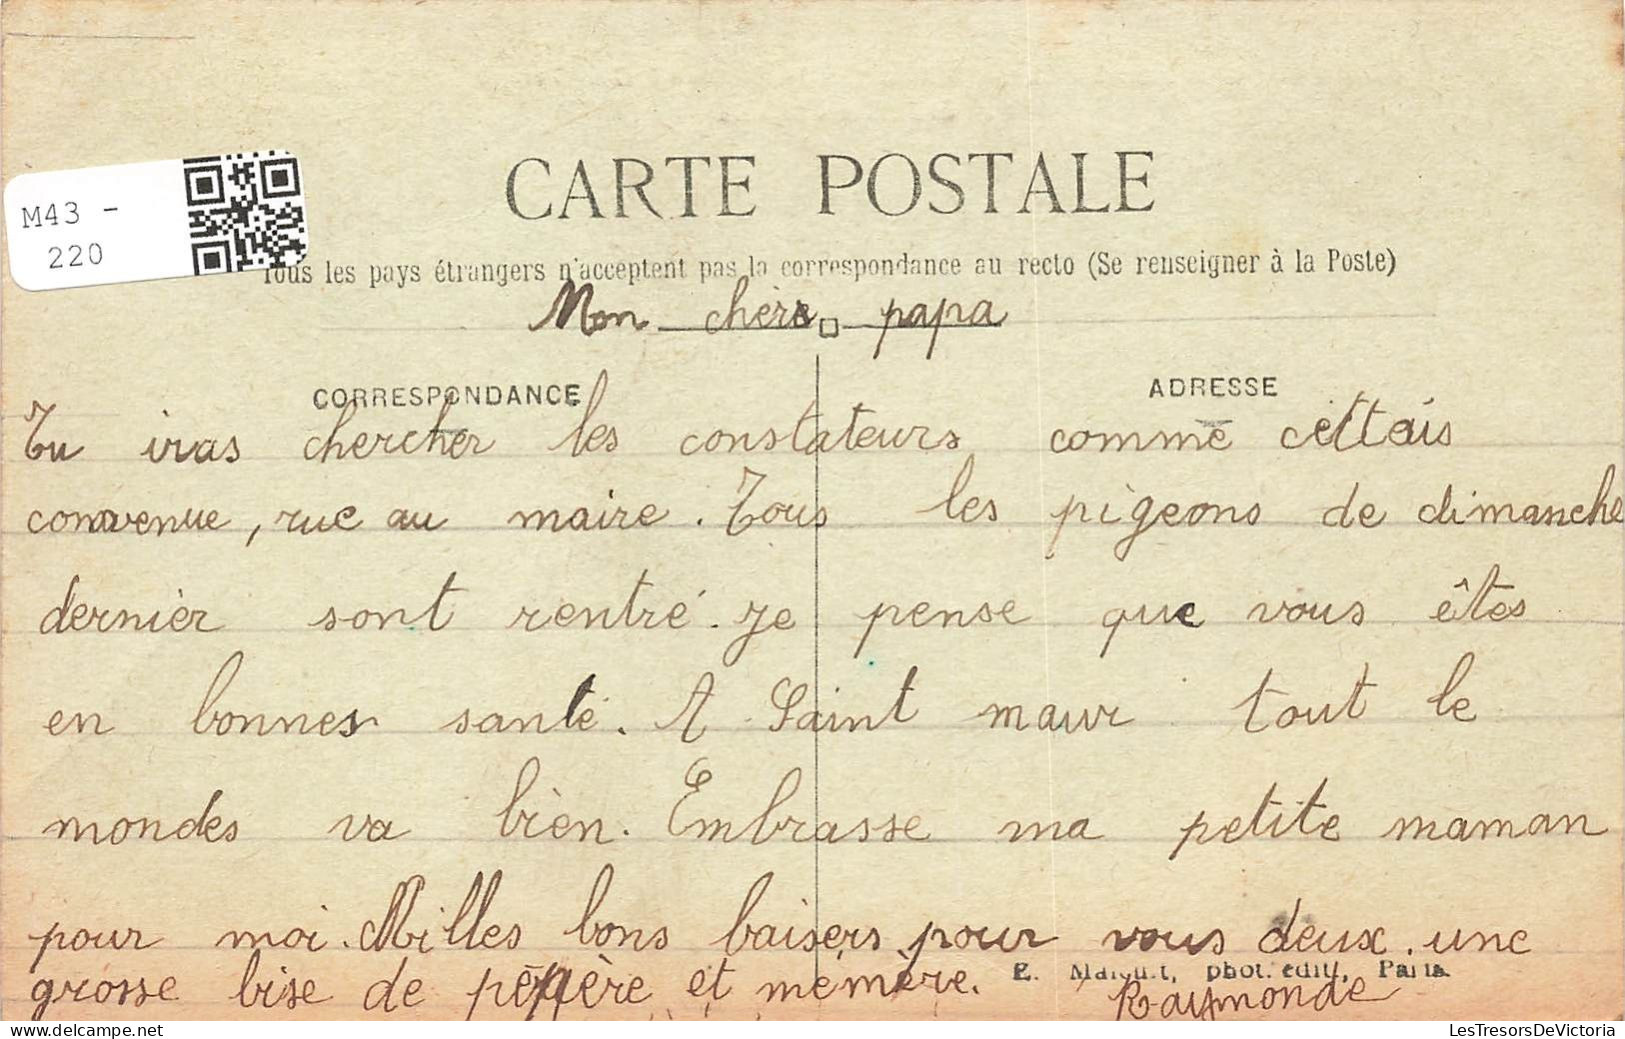 M43 -
220
CARTE POSTALE
Tous les pays étrangers n'acceptent pas la correspondance au recto (Se renseigner à la Poste)
Mon chère papa
CORRESPONDANCE
ADRESSE
Tu iras chercher les constateurs comme cettais
convenue, rue au maire. Tous les pigeons de dimanche
dernièr sont rentré. Je pense que vous êtes
en bonnes santé. A Saint maur tout le
mondes va bien. Embrasse ma petite maman
pour moi. Milles bons baisers pour vous deux. une
grosse bise de pépère et mémère.
E. phot. édit, Paris
Raymonde
LesTresorsDeVictoria